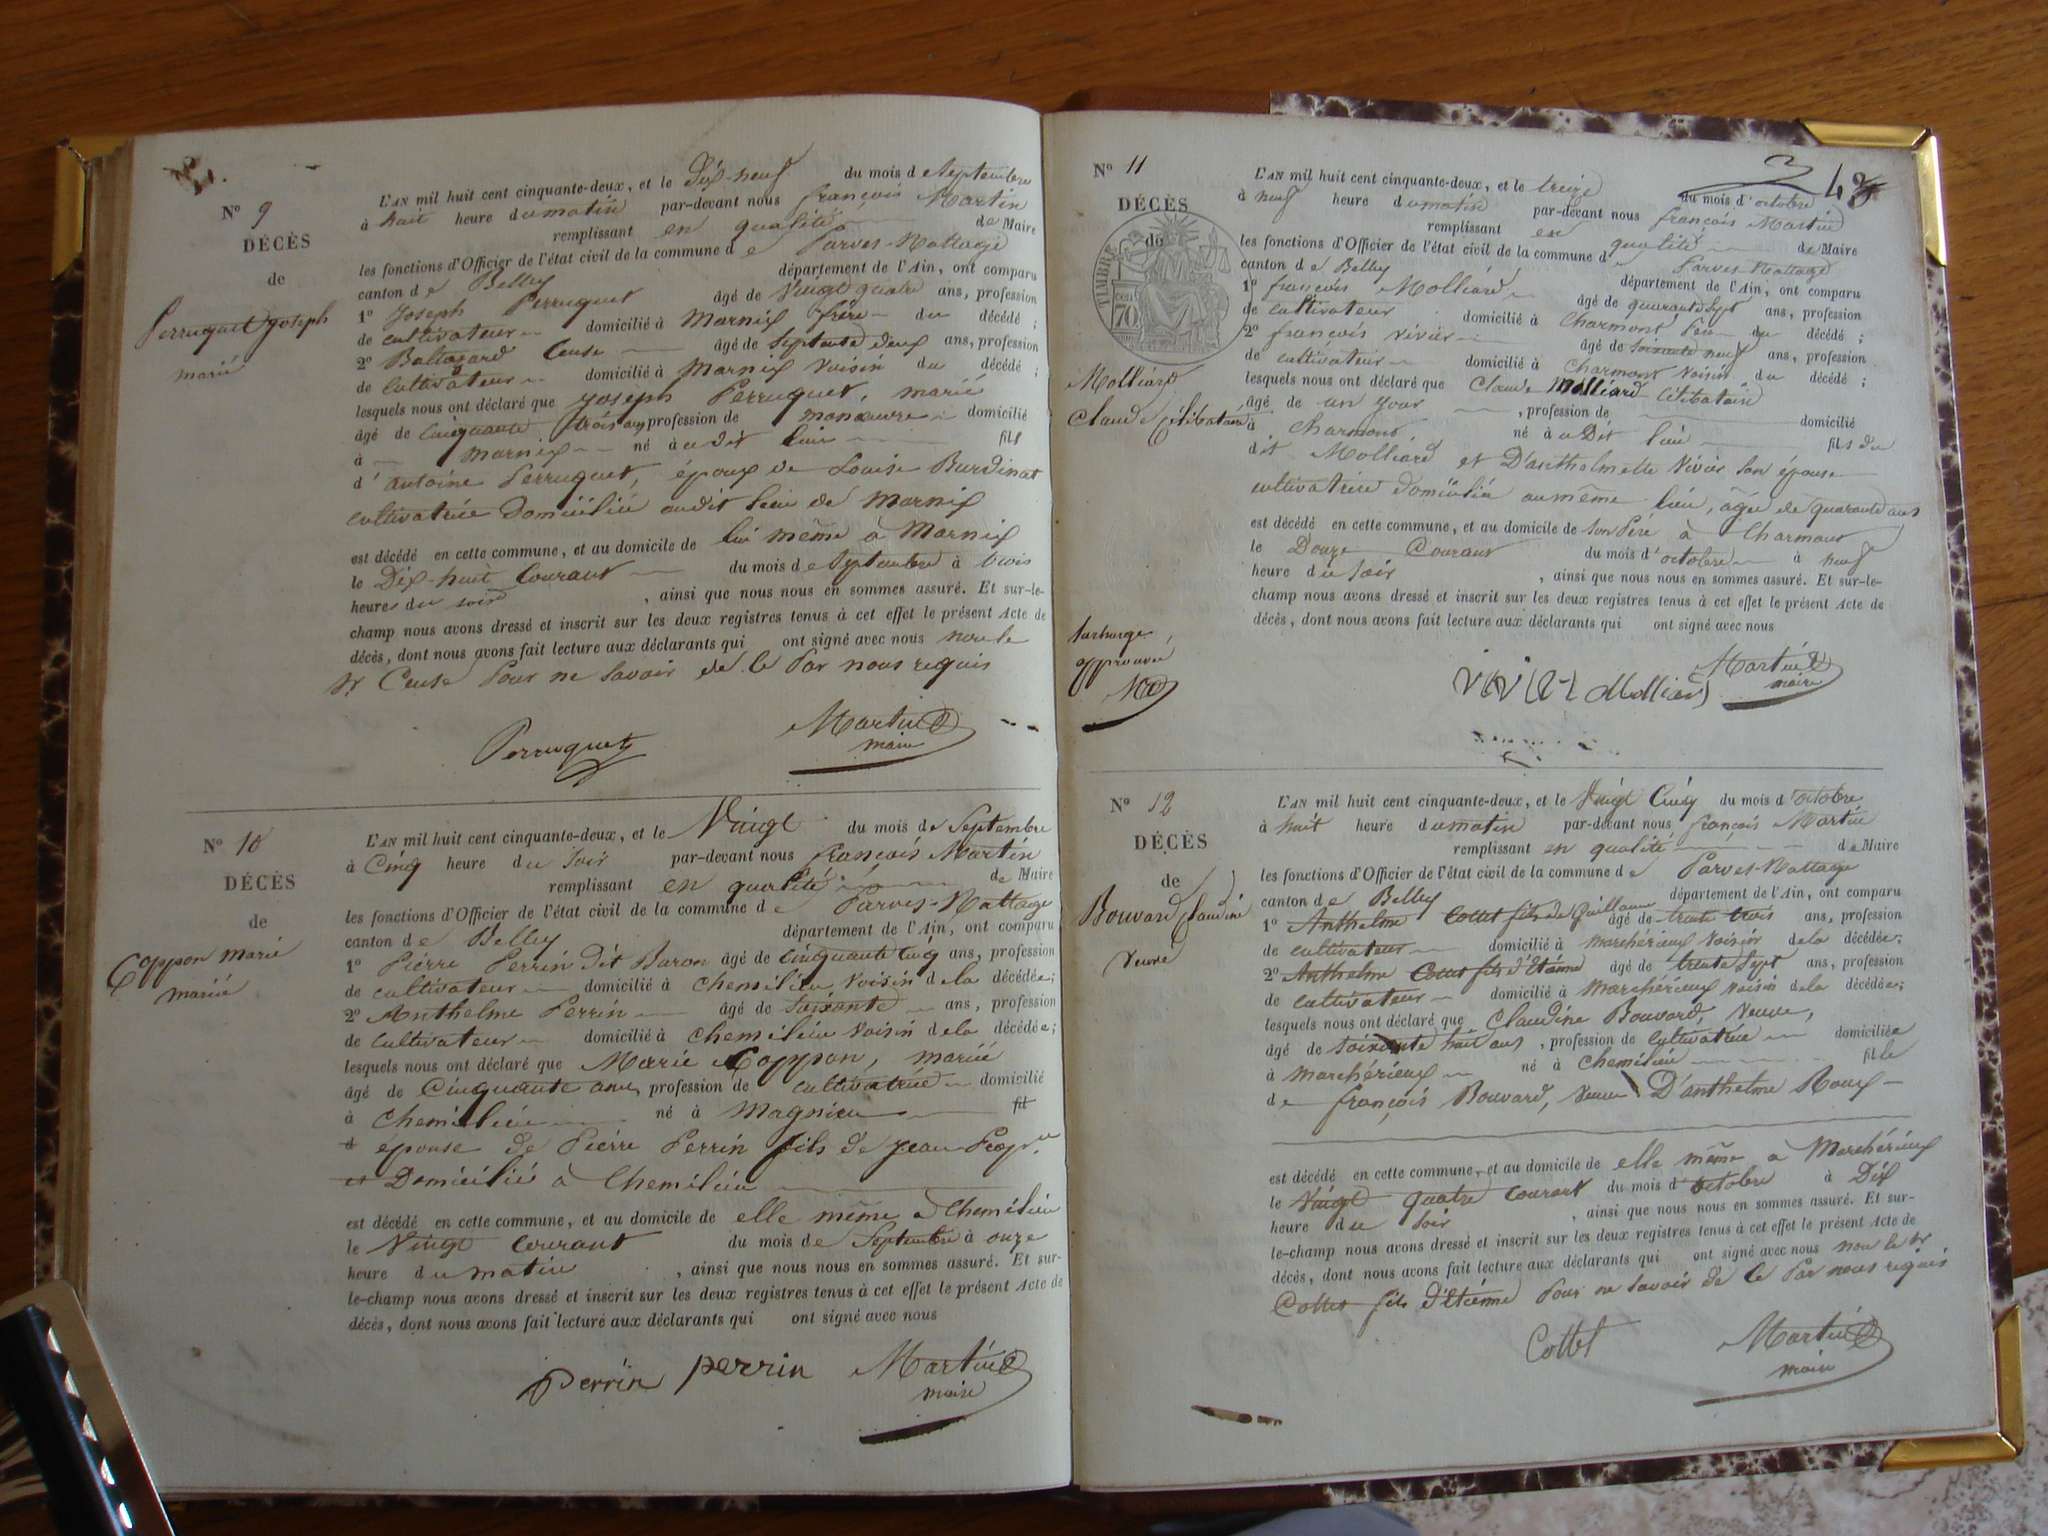 N° 9
DÉCÈS
de
Perruquet Joseph
marié
L'AN mil huit cent cinquante-deux, et le Dix-neuf du mois de Septembre
à huit heure du matin par-devant nous françois Martin
remplissant en qualité de Maire
les fonctions d'Officier de l'état civil de la commune de Parves-Nattage
canton de Belley département de l'Ain, ont comparu
1° Joseph Perruquet âgé de Vingt quatre ans, profession
de cultivateur domicilié à Marnix frère du décédé ;
2° Baltazard Ceuse âgé de Septante deux ans, profession
de cultivateur domicilié à Marnix Voisin du décédé ;
lesquels nous ont déclaré que joseph Perruquet, marié
âgé de Cinquante trois ans profession de manœuvre domicilié
à Marnix né à udit lieu fils
d'antoine Perruquet, époux de Louise Burdinat
cultivatrice Domiciliée audit lieu de Marnix
est décédé en cette commune, et au domicile de lui même à Marnix
le Dix-huit Courant du mois de Septembre à trois
heures du soir , ainsi que nous nous en sommes assuré. Et sur-le-
champ nous avons dressé et inscrit sur les deux registres tenus à cet effet le présent Acte de
décès, dont nous avons fait lecture aux déclarants qui ont signé avec nous non le
Sr Ceuse Pour ne Savoir de ce Par nous requis
Perruquet Martin
maire
N° 10
DÉCÈS
de
Coppon marie
mariée
L'AN mil huit cent cinquante-deux, et le Vingt du mois de Septembre
à Cinq heure du Soir par-devant nous françois Martin
remplissant en qualité de Maire
les fonctions d'Officier de l'état civil de la commune de Parves-Nattage
canton de Belley département de l'Ain, ont comparu
1° Pierre Perrin Dit Baron âgé de Cinquante Cinq ans, profession
de cultivateur domicilié à Chemilieu Voisin de la décédée ;
2° Anthelme Perrin âgé de Soixante ans, profession
de cultivateur domicilié à Chemilieu Voisin de la décédée ;
lesquels nous ont déclaré que Marie Coppon, mariée
âgé de Cinquante ans, profession de cultivatrice domicilié
à Chemilieu né à Magnieu fil
d épouse de Pierre Perrin fils de Jean
et Domicilié à Chemilieu
est décédé en cette commune, et au domicile de elle même à Chemilieu
le Vingt Courant du mois de Septembre à onze
heure du matin , ainsi que nous nous en sommes assuré. Et sur-
le-champ nous avons dressé et inscrit sur les deux registres tenus à cet effet le présent Acte de
décès, dont nous avons fait lecture aux déclarants qui ont signé avec nous
Perrin perrin Martin
maire
43
N° 11
DÉCÈS
de
TIMBRE
70 cent
Molliard
Claude Célibataire
L'AN mil huit cent cinquante-deux, et le treize du mois d'octobre
à neuf heure du matin par-devant nous françois Martin
remplissant en qualité de Maire
les fonctions d'Officier de l'état civil de la commune d Parves-Nattage
canton de Belley département de l'Ain, ont comparu
1° françois Molliard âgé de quarante Sept ans, profession
de cultivateur domicilié à Charmont Père du décédé ;
2° françois Vivier âgé de Soixante neuf ans, profession
de cultivateur domicilié à Charmont Voisin du décédé ;
lesquels nous ont déclaré que Claude Molliard Célibataire
âgé de un jour , profession de domicilié
à Charmont né à uDit lieu fils du
dit Molliard et D'anthelmette Vivier Son épouse
cultivatrice domiciliée au même lieu, âgée de quarante ans
est décédé en cette commune, et au domicile de Son Père à Charmont
le Douze Courant du mois d'octobre à neuf
heure du Soir , ainsi que nous nous en sommes assuré. Et sur-le-
champ nous avons dressé et inscrit sur les deux registres tenus à cet effet le présent Acte de
décès, dont nous avons fait lecture aux déclarants qui ont signé avec nous
Surcharge
approuvée
viviEr Molliard Martin
maire
N° 12
DÉCÈS
de
Bouvard Claudine
Veuve
L'AN mil huit cent cinquante-deux, et le Vingt Cinq du mois d'octobre
à huit heure du matin par-devant nous françois Martin
remplissant en qualité de Maire
les fonctions d'Officier de l'état civil de la commune de Parves-Nattage
canton de Belley département de l'Ain, ont comparu
1° Anthelme Cottet fils de Guillaume âgé de trente trois ans, profession
de cultivateur domicilié à Marchérieux Voisin de la décédée ;
2° Anthelme Cottet fils d'Etienne âgé de trente Sept ans, profession
de cultivateur domicilié à Marchérieux Voisin de la décédée ;
lesquels nous ont déclaré que Claudine Bouvard, Veuve,
âgé de Soixante huit ans , profession de cultivatrice domiciliée
à Marchérieux né à Chemilieu fille
de françois Bouvard, Veuve D'anthelme Roux
est décédé en cette commune, et au domicile de elle même à Marchérieux
le Vingt quatre Courant du mois d'octobre à Dix
heure du Soir , ainsi que nous nous en sommes assuré. Et sur-
le-champ nous avons dressé et inscrit sur les deux registres tenus à cet effet le présent Acte de
décès, dont nous avons fait lecture aux déclarants qui ont signé avec nous non le Sr
Cottet fils d'Etienne Pour ne Savoir de ce Par nous requis
Cottet Martin
maire